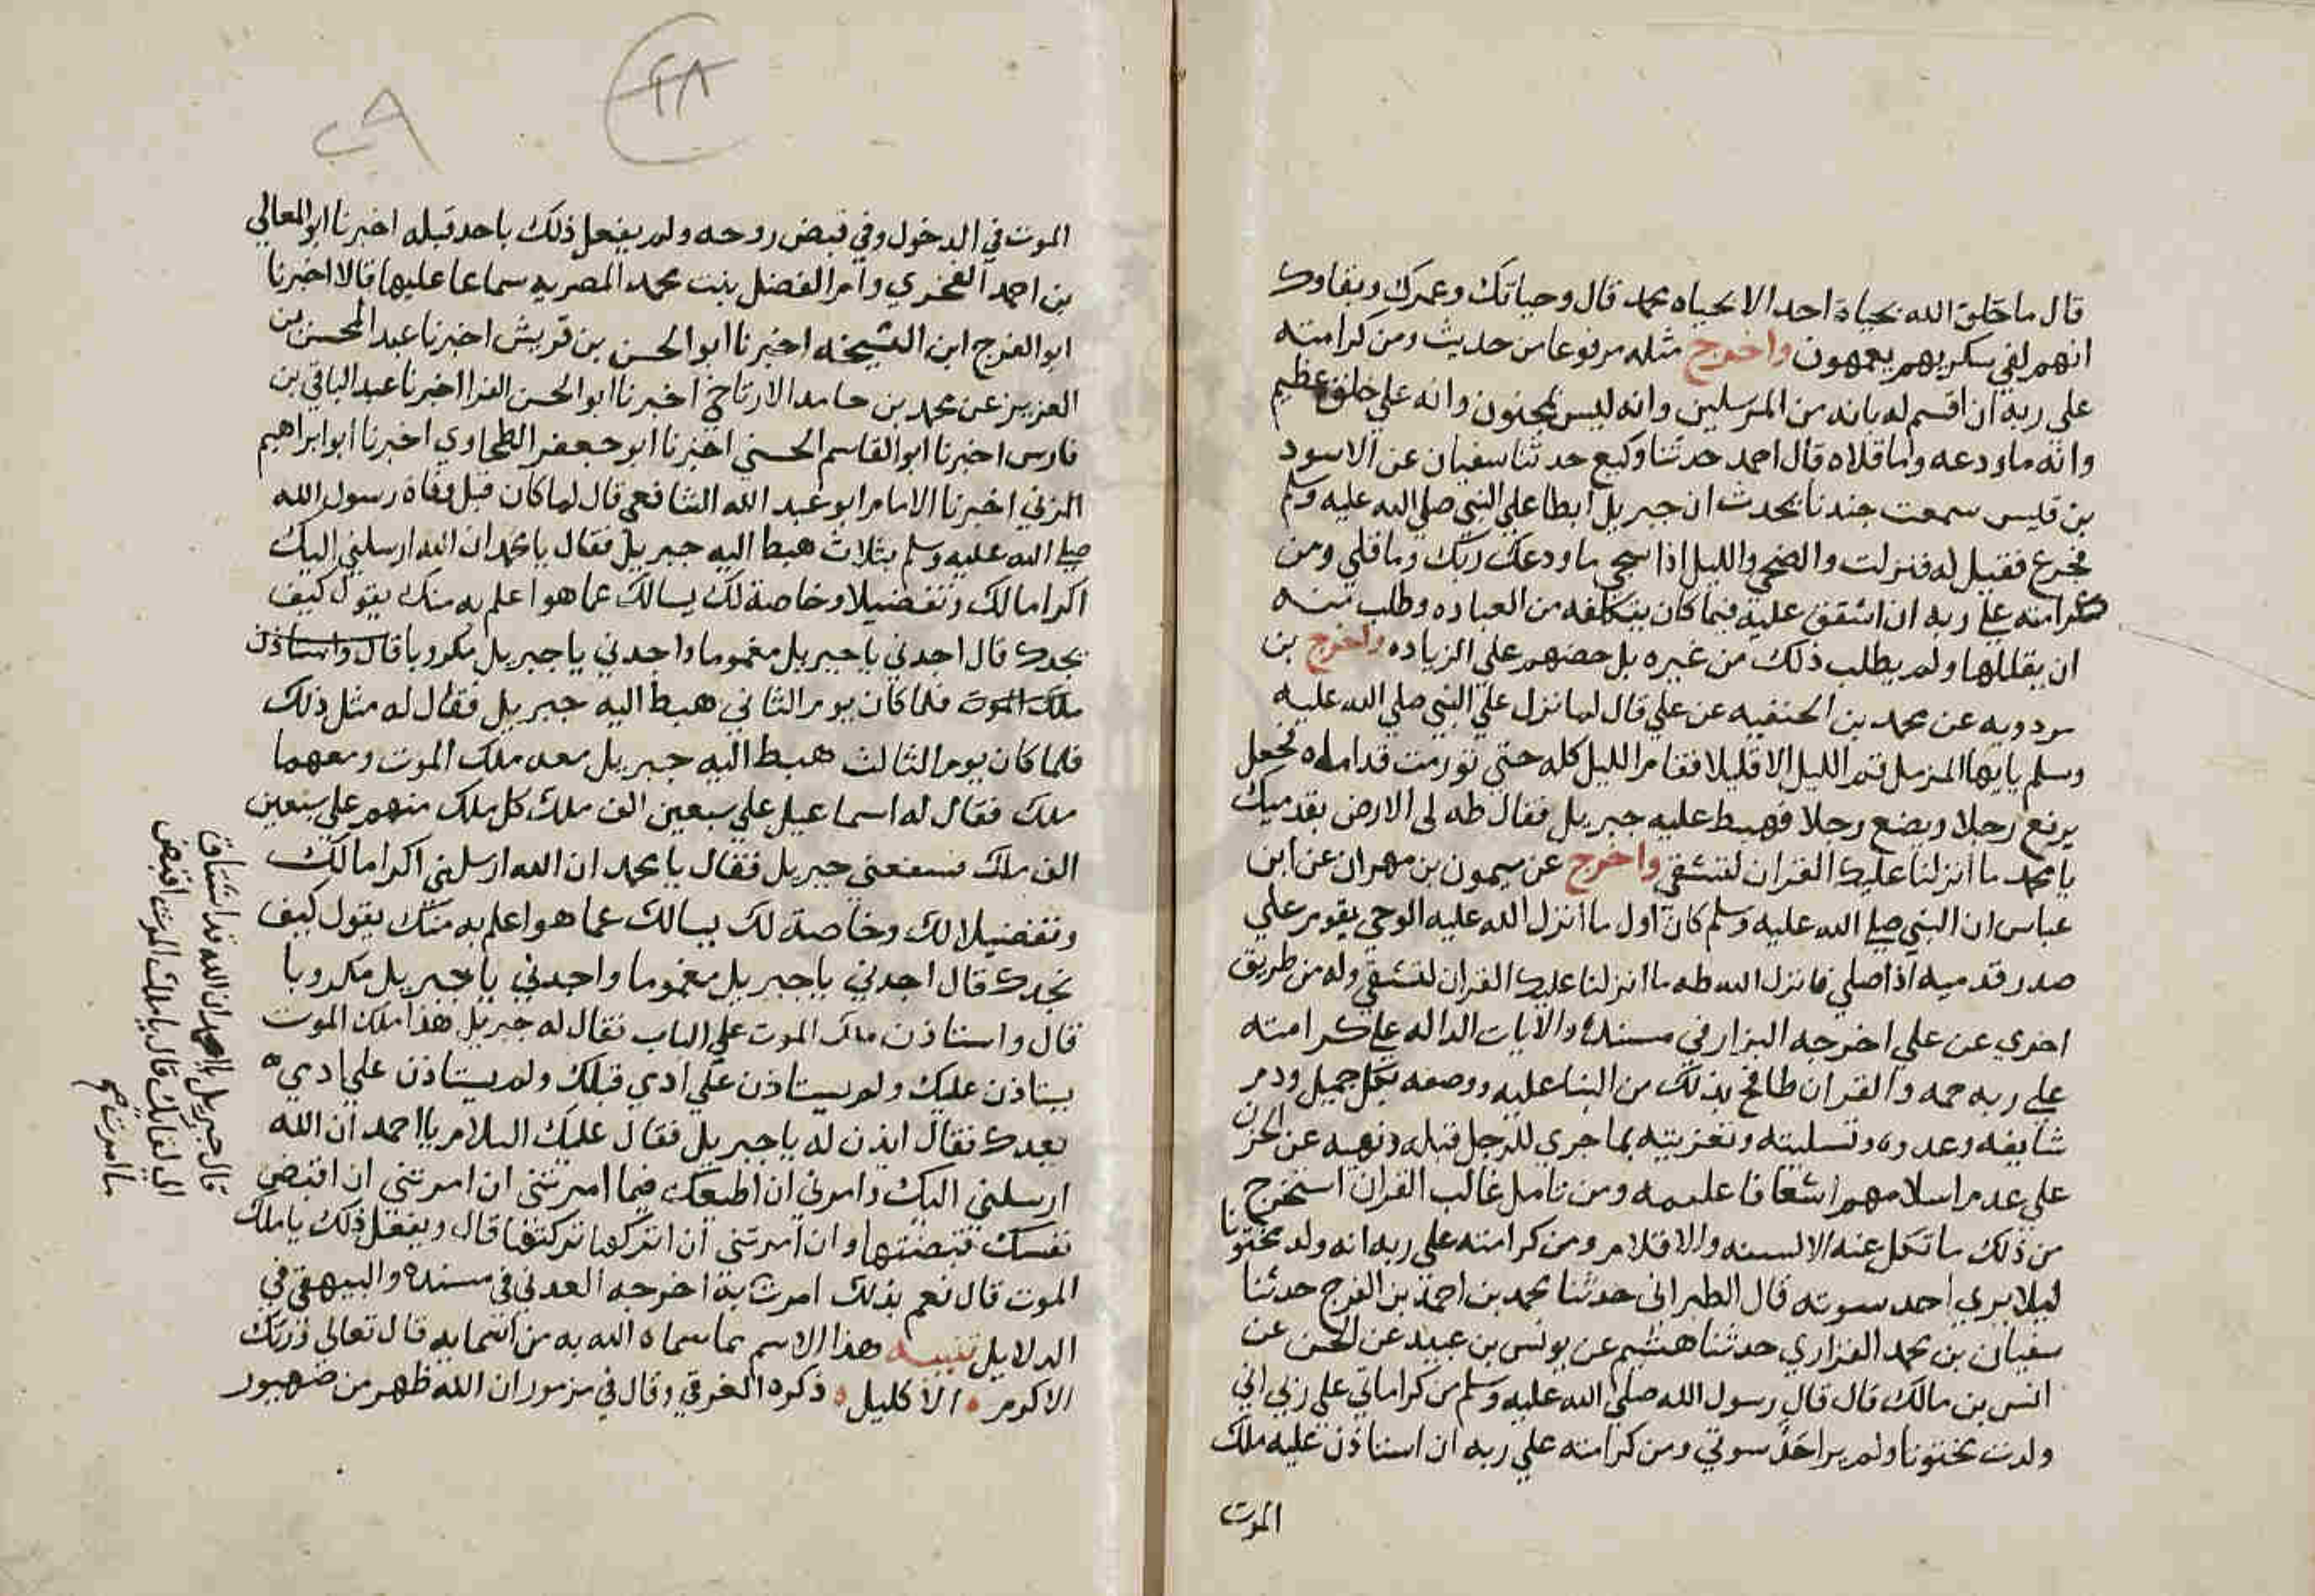 قال ما حلق الله بحياة احد الا بحياه محمد قال وحياتك وعمرك وبقاوك
انهم لفي سكرتهم يعمهون واخرج مثله مرفوعا من حديث ومن كرامته
على ربه ان اقسم له بانه من المرسلين وانه ليس بمجنون وانه علي خلق عظيم
وانه ما ودعه وما قلاه قال احمد حدثنا وكيع حدثنا سفيان عن الاسود
بن قيس سمعت جندبا يحدث ان جبريل ابطا علي النبي صلي الله عليه وسلم
فجزع فقيل له فنزلت والضحي والليل اذا سجي ما ودعك ربك وما قلي ومن
كرامته علي ربه ان اشفق عليه فيما كان يتكلفه من العباده وطلب منه
ان يقللها ولم يطلب ذلك من غيره بل حضهم علي الزياده واخرج بن
مردويه عن محمد بن الحنفيه عن علي قال لما نزل علي النبي صلي الله عليه
وسلم يايها المزمل قم الليل الا قليلا فقام الليل كله حتي تورمت قدماه فجعل
يرفع رجلا ويضع رجلا فهبط عليه جبريل فقال طه لى الارض بقدميك
يا محمد ما انزلنا عليك القران لتشقي واخرج عن ميمون بن مهران عن ابن
عباس ان النبي صلي الله عليه وسلم كان اول ما انزل الله عليه الوحي يقوم علي
صدر قدميه اذا صلي فانزل الله طه ما انزلنا عليك القران لتشقي وله من طريق
اخري عن علي اخرجه البزار في مسنده والايات الداله علي كرامته
علي ربه جمه والقران طافح بذلك من الثنا عليه ووصفه بكل جميل وذم
شانيه وعدوه وتسليته وتعزيته بما جري للرجل قبله ونهيه عن الحزن
علي عدم اسلامهم اشفاقا عليه ومن تامل غالب القران استخرج
من ذلك ما تكل عنه الالسنه والاقلام ومن كرامته علي ربه انه ولد مختونا
ليلا يري احد سوته قال الطبراني حدثنا محمد بن احمد بن الفرج حدثنا
سفيان بن محمد الفزاري حدثنا هشيم عن يونس بن عبيد عن الحسن عن
انس بن مالك قال قال رسول الله صلي الله عليه وسلم من كراماتي علي ربي اني
ولدت مختونا ولم ير احد سوتي ومن كرامته علي ربه ان استاذن عليه ملك
الموت
٢٨
٢٩
الموت في الدخول وفي قبض روحه ولم يفعل ذلك باحد قبله اخبرنا ابو المعالي
بن احمد الفخري وام الفضل بنت محمد المصريه سماعا عليها قالا اخبرنا
ابو الفرج ابن الشيخه اخبرنا ابو الحسن بن قريش اخبرنا عبد المحسن بن
العزيز عن محمد بن حامد الارتاحي اخبرنا ابو الحسن الفرا اخبرنا عبد الباقي بن
فارس اخبرنا ابو القاسم الحسني اخبرنا ابو جعفر الطحاوي اخبرنا ابو ابراهيم
المزني اخبرنا الامام ابو عبد الله الشافعي قال لما كان قبل وفاة رسول الله
صلي الله عليه وسلم بثلاث هبط اليه جبريل فقال يا محمد ان الله ارسلني اليك
اكراما لك وتفضيلا وخاصة لك يسالك عما هو اعلم به منك يقول كيف
تجدك قال اجدني يا جبريل مغموما واجدني يا جبريل مكروبا قال واستاذن
ملك الموت فلما كان يوم الثاني هبط اليه جبريل فقال له مثل ذلك
فلما كان يوم الثالث هبط اليه جبريل معه ملك الموت ومعهما
ملك فقال له اسماعيل علي سبعين الف ملك كل ملك منهم علي سبعين
الف ملك جبريل فقال يا محمد ان الله ارسلني اكراما لك
وتفضيلا لك وخاصة لك يسالك عما هو اعلم به منك يقول كيف
تجدك قال اجدني يا جبريل مغموما واجدني يا جبريل مكروبا
قال واستاذن ملك الموت علي الباب فقال له جبريل هذا ملك الموت
يستاذن عليك ولم يستاذن علي ادمي قبلك ولم يستاذن علي ادمي
بعدك فقال ايذن له يا جبريل فقال عليك السلام يا احمد ان الله
ارسلني اليك وامرني ان اطيعك فيما امرتني ان امرتني ان اقبض
نفسك قبضتها وان امرتني ان اتركها تركتها قال وتفعل ذلك يا ملك
الموت قال نعم بذلك امرت اخرجه العدني في مسنده والبيهقي في
الدلايل تنبيه هذا الاسم مما سماه الله به من اسمايه قال تعالى وربك
الاكرم الاكليل ذكره العزفي وقال في مزمور ان الله ظهر من صهيون
قال جبريل يا محمد ان الله قد اشتاق
الي لقائك قال يا ملك الموت اقبض
ما امرت به